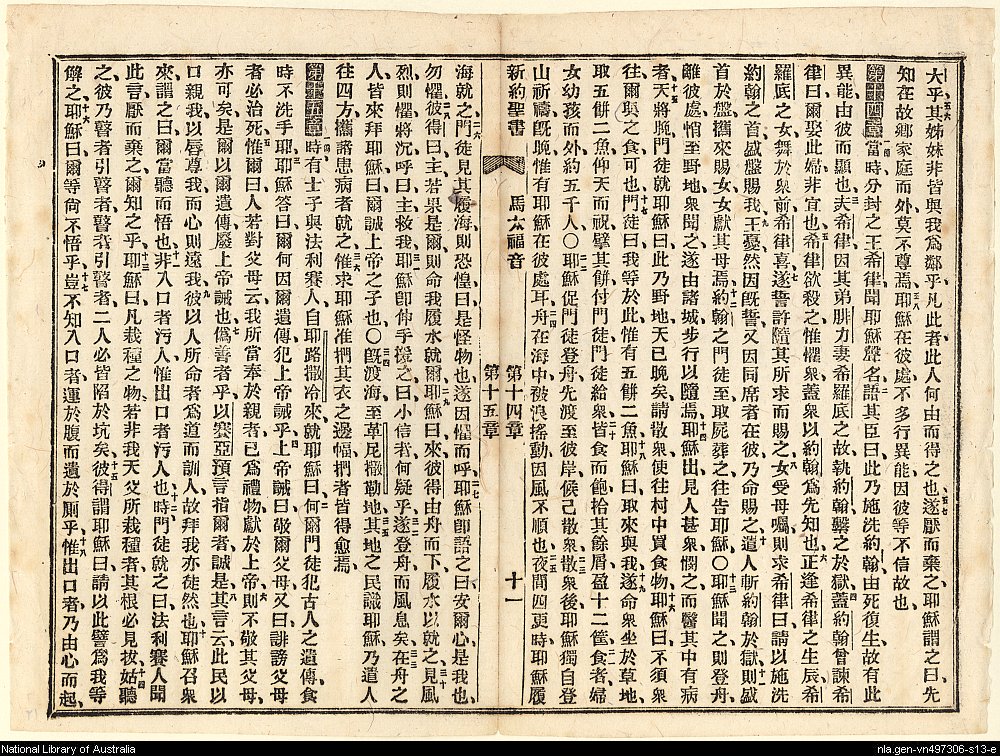 大乎其姊妹非皆與我爲鄰乎凡此者此人何由而得之也遂厭而棄之耶穌謂之曰先
知在故鄉家庭而外莫不尊焉耶穌在彼處不多行異能因彼等不信故也
第十四章當時分封之王希律聞耶穌聲名語其臣曰此乃施洗約翰由死復生故有此
異能由彼而顯也夫希律因其弟腓力妻希羅底之故執約翰繫之於獄蓋約翰曾諫希
律曰爾娶此婦非宜也希律欲殺之惟懼衆蓋衆以約翰爲先知也正逢希律之生辰希
羅底之女舞於衆前希律喜遂誓許隨其所求而賜之女受母囑則求希律曰請以施洗
約翰之首盛盤賜我王憂然因旣誓又因同席者在彼乃命賜之遣人斬約翰於獄則盛
首於盤攜來賜女女獻其母焉約翰之門徒至取屍葬之往告耶穌〇耶穌聞之則登舟
離彼處悄至野地衆聞之遂由諸城步行以隨焉耶穌出見人甚衆憫之而醫其中有病
者天將晚門徒就耶穌曰此乃野地天已晚矣請散衆使往村中買食物耶穌曰不須衆
往爾與之食可也門徒曰我等於此惟有五餅二魚耶穌曰取來與我遂命衆坐於草地
取五餅二魚仰天而祝擘其餅付門徒門徒給衆皆食而飽拾其餘屑盈十二筐食者婦
女幼孩而外約五千人〇耶穌促門徒登舟先渡至彼岸候己散衆散衆後耶穌獨自登
山祈禱旣晚惟有耶穌在彼處耳舟在海中被浪搖動因風不順也夜間四更時耶穌履
新約聖書 馬太福音 第十四章 第十五章 十一
海就之門徒見其履海則恐惶曰是怪物也遂因懼而呼耶穌卽語之曰安爾心是我也
勿懼彼得曰主若果是爾則命我履水就爾耶穌曰來彼得由舟而下履水以就之見風
烈則懼將沉呼曰主救我耶穌卽伸手援之曰小信者何疑乎遂登舟而風息矣在舟之
人皆來拜耶穌曰爾誠上帝之子也〇旣渡海至革尼撒勒地其地之民識耶穌乃遣人
往四方攜諸患病者就之惟求耶穌准捫其衣之邊幅捫者皆得愈焉
第十五章時有士子與法利賽人自耶路撒冷來就耶穌曰何爾門徒犯古人之遺傳食
時不洗手耶耶穌答曰爾何因爾遺傳犯上帝誡乎上帝誡曰敬爾父母又曰誹謗父母
者必治死惟爾曰人若對父母云我所當奉於親者已爲禮物獻於上帝則不敬其父母
亦可矣是爾以爾遺傳廢上帝誡也僞善者乎以賽亞預言指爾者誠是其言云此民以
口親我以唇尊我而心則遠我彼以人所命者爲道而訓人故拜我亦徒然也耶穌召衆
來謂之曰爾當聽而悟也非入口者污人惟出口者污人也時門徒就之曰法利賽人聞
此言厭而棄之爾知之乎耶穌曰凡栽種之物若非我天父所栽種者其根必見拔姑聽
之彼乃瞽者引瞽者瞽者引瞽者二人必皆陷於坑矣彼得謂耶穌曰請以此譬爲我等
解之耶穌曰爾等尙不悟乎豈不知入口者運於腹而遺於厠乎惟出口者乃由心而起
National Library of Australia
nla.gen-vn497306-s13-e